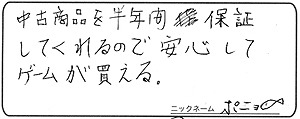 中古商品を半年間保証
してくれるので安心して
ゲームが買える。
ニックネーム ポニョ